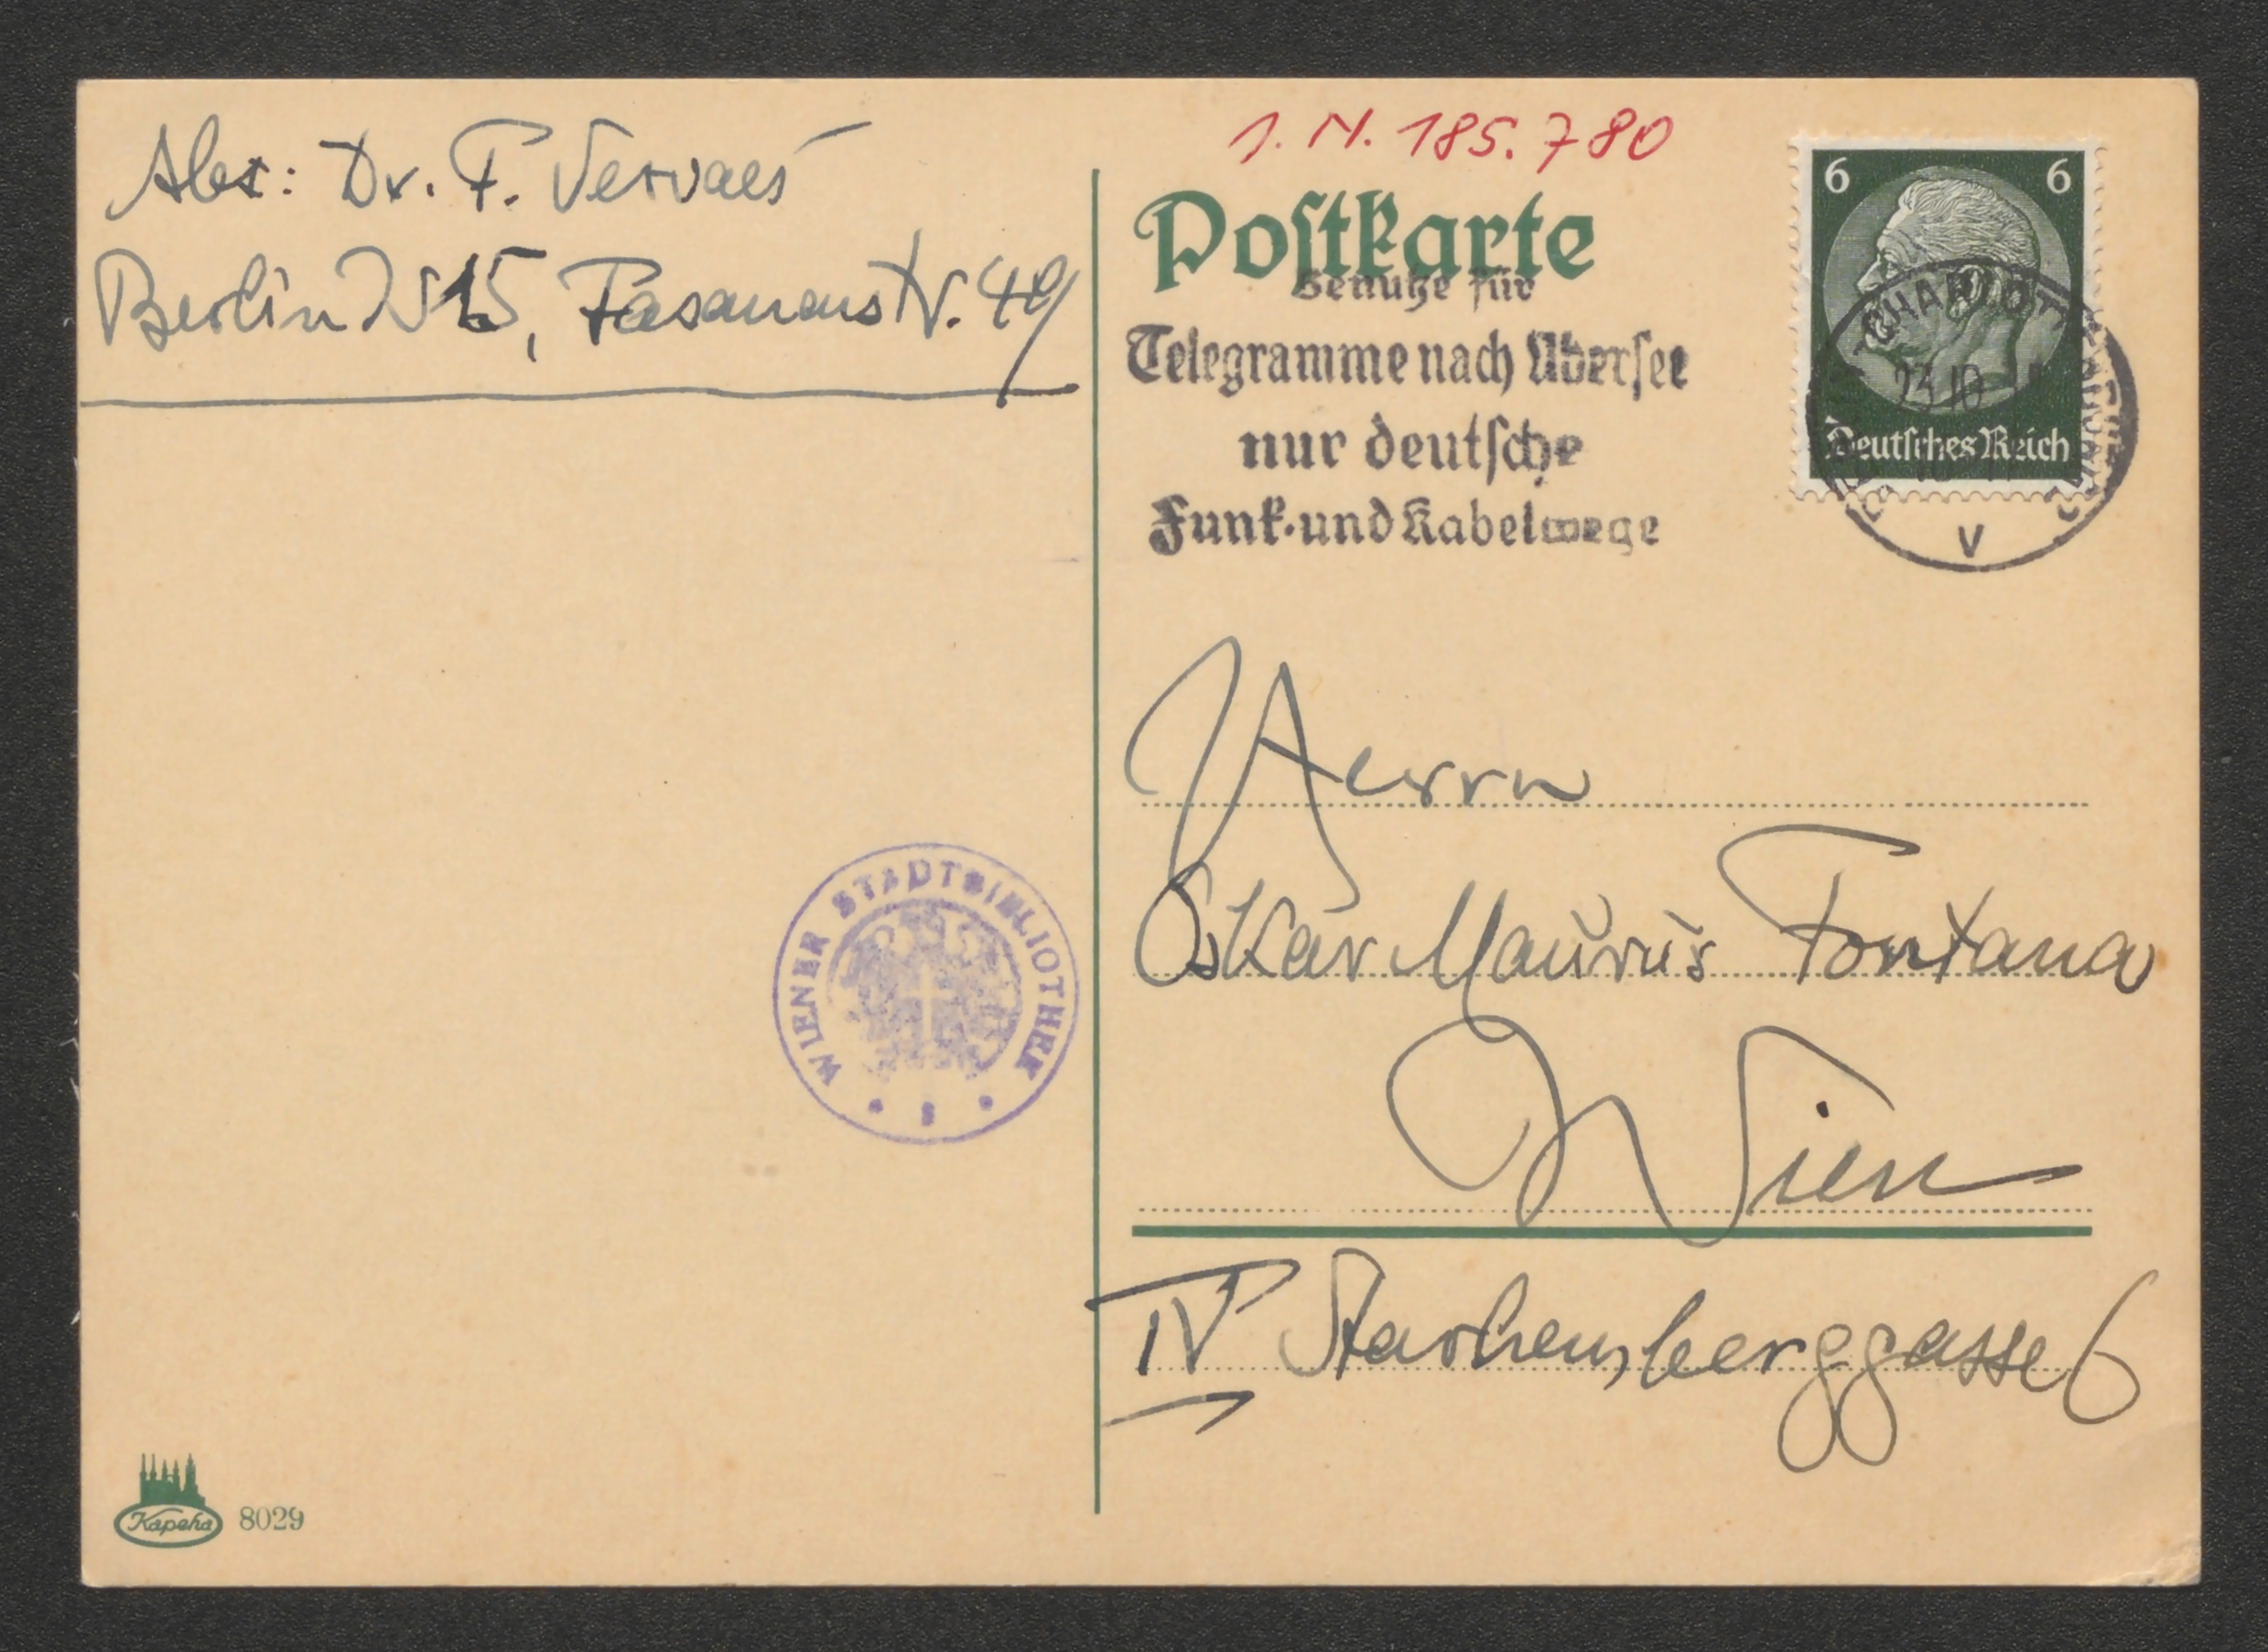 Abs: Dr. F. Servaes
Berlin W 15, Fasanenstr. 49
I. N. 185.780
Postkarte
Benutze für
Telegramme nach Übersee
nur deutsche
Funk- und Kabelwege
6 6
Deutsches Reich
23.10
v
Herrn
Oskar Maurus Fontana
Wien
IV Starhemberggasse 6
WIENER STADTBIBLIOTHEK
Kapeha 8029